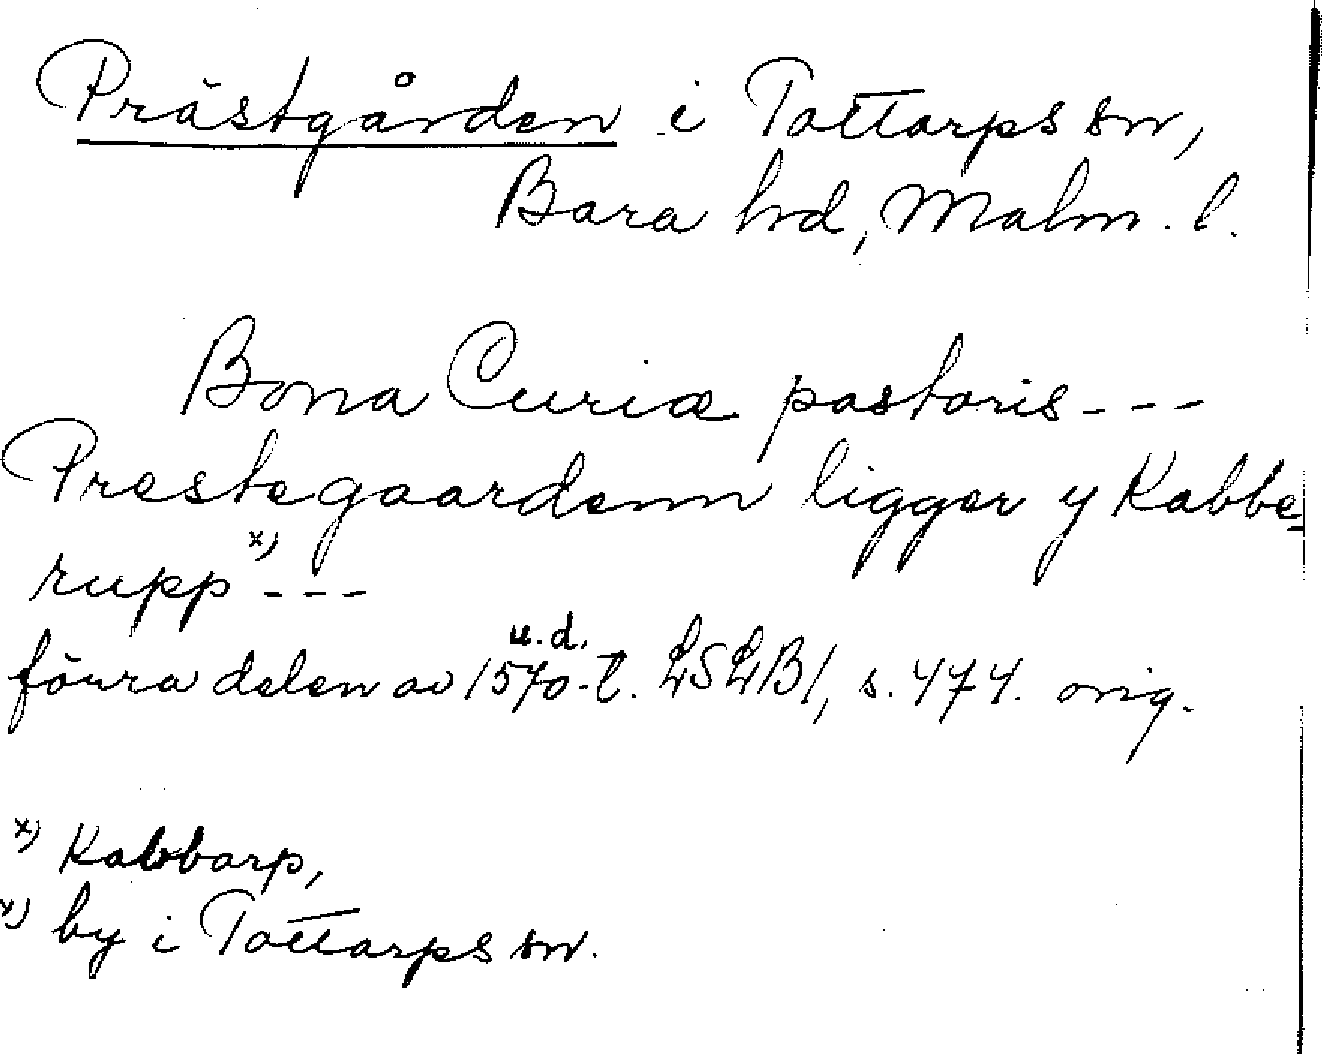 Prästgården i Tottarps sn,
Bara hd, Malm. l.
Bona Curiæ pastoris - - -
Prestegaardenn ligger y Kabbe-
rupp x) - - -
u.d.
förra delen av 1570-t. LSLB1, s. 474. orig.
x) Kabbarp,
x) by i Tottarps sn.